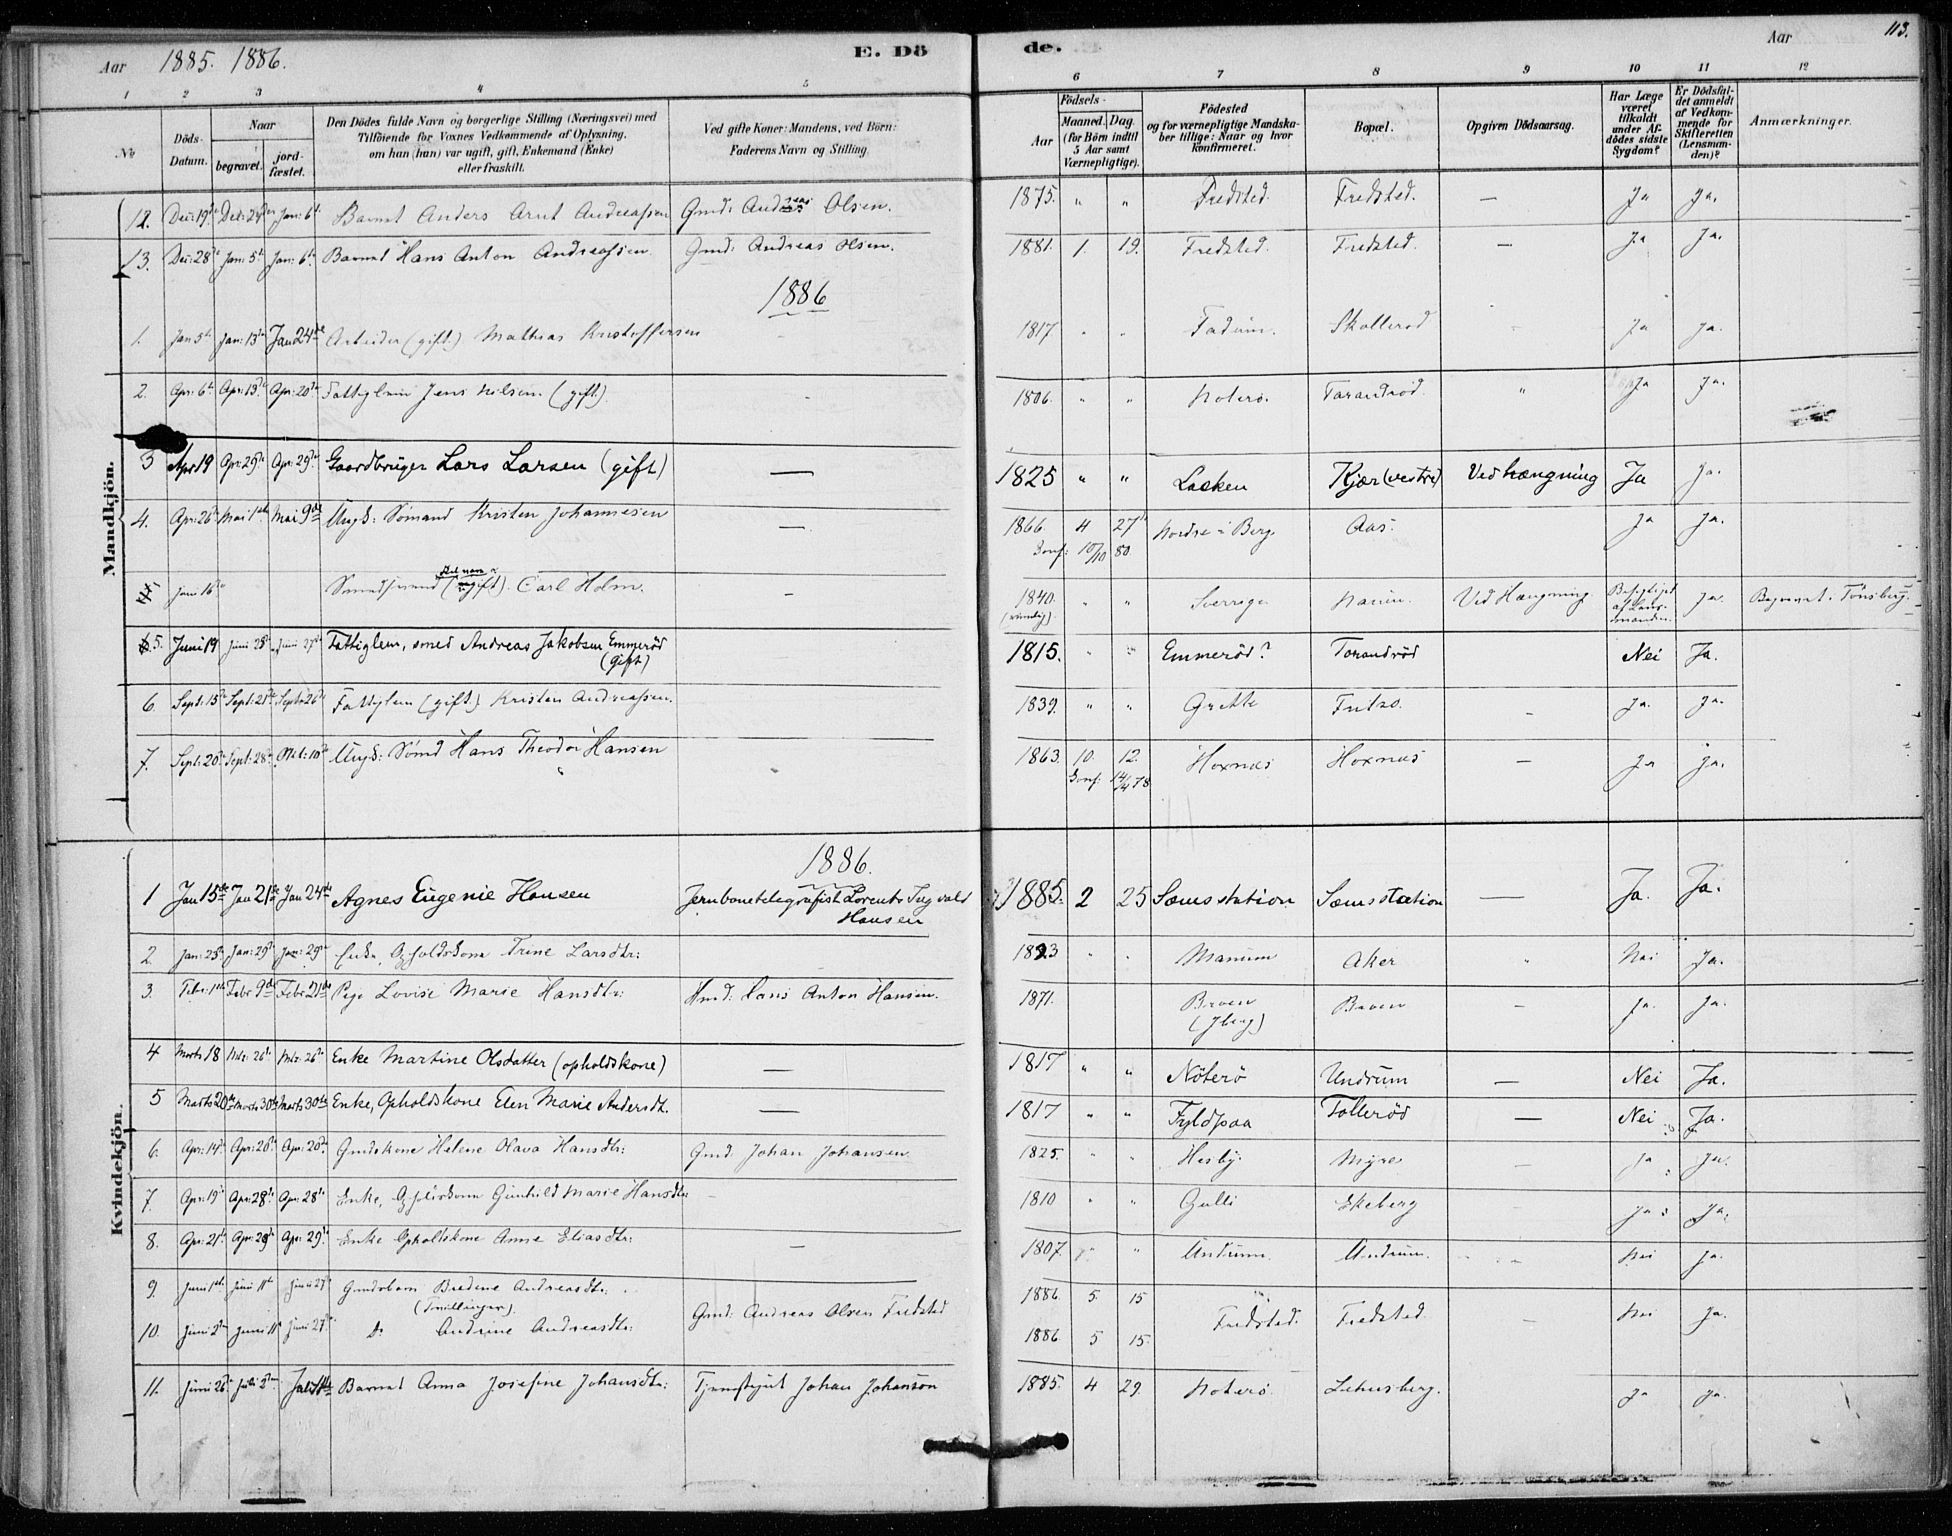 Aar 1885. 1886. E. Dö de. Aar 113.
1 2 3 4 5 6 7 8 9 10 11 12
No
Döds-Datum.
Naar
begravet. jordfæstet.
Den Dödes fulde Navn og borgerlige Stilling (Næringsvei) med
Tilföiende for Voxnes Vedkommende af Oplysning,
om han (hun) var ugift, gift, Enkemand (Enke)
eller fraskilt.
Ved gifte Koner: Mandens, ved Börn:
Faderens Navn og Stilling.
Födsels-
Aar Maaned. Dag.
(for Börn indtil
5 Aar samt
Værnepligtige).
Födested
og for værnepligtige Mandska-
ber tillige: Naar og hvor
Konfirmeret.
Bopæl.
Opgiven Dödsaarsag.
Har Læge
været
tilkaldt
under Af-
dödes sidste
Sygdom?
Er Dödsfal-
det anmeldt
af Vedkom-
mende for
Skifteretten
(Lensman-
den)?
Anmærkninger.
Mandkjön.
12. Dec: 19de Dec: 24de Jan: 6te Barnet Anders Arnt Andreassen Gmd: Andreas Olsen. 1875. " " Fredsted. Fredsted. — Ja Ja.
13. Dec: 28de Jan: 5te Jan: 6te Barnet Hans Anton Andreassen Gmd: Andreas Olsen. 1881. 1. 19. Fredsted. Fredsted. — Ja Ja.
1886
1. Jan 5te Jan: 13de Jan 24de Arbeider (gift.) Mathias Kristoffersen - 1817 " " Fadum. Skallerod - Ja Ja.
2. Apr: 6te Apr: 13de Apr: 20de Fattiglem Jens Nilsen. (gift). - 1806. " " Noterö. Tarandrod. " Ja Ja.
3 Apr 19 Apr: 29de Apr: 29de Gaardbruger Lars Larsen (gift) — 1825 " " Laeken Kjær (vestre) Ved hængning Ja Ja.
4. Apr: 26de Mai 1ste Mai 9de Ungk: Sömand Kristen Johannesen — 1866. 4 27de Nordre i Berg Aas. Ja Ja.
Conf: 10/10 80.
5 Juni 16de (ugift). Carl Holm. - 1840. " " Sverrige Narum. Ved Hængning. Besigtiget af Lensmanden. Ja. Begravet i Tönsberg.
6.5. Juni 19 Juni 23de Juni 27de Fattiglem, smed Andreas Jakobsen Emmeröd
(gift)
1815. " " Emmeröd? Torandröd Nei Ja.
6. Sept: 15de Sept: 21de Sept: 26de Fattiglem (gift.) Kristen Andreassen. 1839. " " Grette — Ja. Ja.
7. Sept: 20de Sept: 28de Okt: 10de Ungk: Sömd Hans Theodor Hansen - 1863. 10. 12. Hoxnæs Hoxnæs — Ja Ja.
Conf: 14/4 78
Kvindekjön.
1886.
1 Jan 15de Jan 21de Jan 24de Agnes Eugenie Hansen Jernbanetelegrafist Lorents Ingvald
Hansen
1885. 2 25 Sæms station Sæms station — Ja. Ja.
2. Jan: 23de Jan: 29de Jan: 29de Enke, Opholdskone Trine Larsdtr: " " Manum Aker " Nei Ja.
3. Febr: 1ste Febr 9de Febr 21de Pige Lovise Marie Hansdtr: Hmd: Hans Anton Hansen. 1871. Braven Braven — Ja. Ja.
4 Marts 18 Mrz: 26de Mrz: 26de Enke Martine Olsdatter (opholdskone) — 1817 " " Nöterö Undrum — Nei Ja.
5 Marts 20de Marts 30de Marts 30de Enke, Opholdskone Elen Marie Andersdt. — 1817 " " Fyldpaa Tolleröd — Nei Ja.
6. Apr: 14de Apr: 20de Apr: 20de Gmdskone Helene Olava Hansdtr: Gmd: Johan Johansen 1825. " " Hesby. Myre — Ja Ja.
7. Apr: 19de Apr: 28de Apr: 28de Enke, Opholdskone Gunhild Marie Hansdtr - 1810 " " Gulli Ekeberg — Ja Ja.
8. Apr: 21de Apr: 29de Apr: 29de Enke Opholdskone Anne Eliasdtr: — 1807. " " Undrum. Undrum. - Nei Ja.
9. Juni 1ste Juni 11te Juni 27de Gmdsbarn Bredine Andreasdtr. 1886. 5. 15
(Tvillinger).
Gmd: Andreas Olsen Fredsted Fredsted. Fredsted — Nei Ja.
10. Juni 2den Juni 11te Juni 27de Do Andrine Andreasdtr: 1886 5 15.
11. Juni 26de Juli 2den Barnet Anna Josefine Johansdtr: Tjenestgut Johan Johanson 1885. 4 29. Noterö. Lehnsberg. Ja Ja.